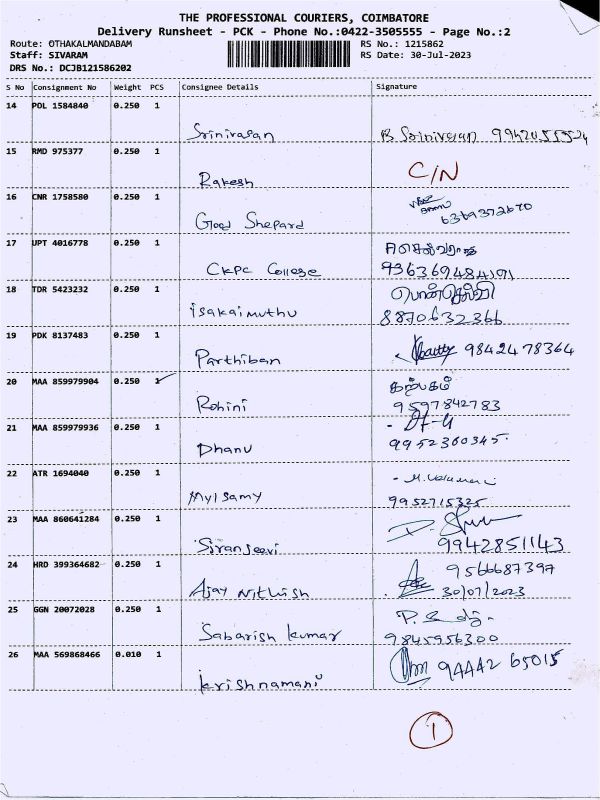 THE PROFESSIONAL COURIERS, COIMBATORE
Delivery Runsheet - PCK - Phone No.:0422-3505555 - Page No.:2
Route: OTHAKALMANDABAM RS No.: 1215862
Staff: SIVARAM RS Date: 30-Jul-2023
DRS No.: DCJB121586202
S No Consignment No Weight PCS Consignee Details Signature
14 POL 1584840 0.250 1
Srinivasan B Srinivasan
15 RMD 975377 0.250 1
Rakesh C/N
16 CNR 1758580 0.250 1
Good Shepard 6369372670
17 UPT 4016778 0.250 1
CKPC College
18 TDR 5423232 0.250 1 பொன்செல்வி
isakaimuthu 8870632366
19 PDK 8137483 0.250 1
Parthiban 98424 78364
20 MAA 859979904 0.250 1 கற்பகம்
Rohini 9597842783
21 MAA 859979936 0.250 1
Dhanu 9952360345
22 ATR 1694040 0.250 1
Mylsamy 9952715325
23 MAA 860641284 0.250 1
Siranjeevi 9942851143
24 HRD 399364682 0.250 1 9566687397
Ajay Nithish 30/07/2023
25 GGN 20072028 0.250 1
Sabarish kumar 9845956300
26 MAA 569868466 0.010 1
krishnamani 94442 65015
1